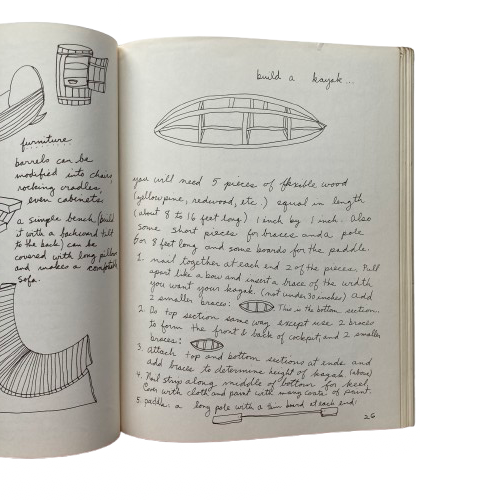 furniture
barrels can be
modified into chairs,
rocking cradles,
even cabinets
a simple bench (build
it with a backward tilt
to the back) can be
covered with long pillows
and makes a comfortable
sofa.
build a kayak...
you will need 5 pieces of flexible wood
(yellow pine, redwood, etc.) equal in length
(about 8 to 16 feet long) 1 inch by 1 inch. Also
some short pieces for braces and a pole
6 or 8 feet long and some boards for the paddle.
1. nail together at each end 2 of the pieces. Pull
apart like a bow and insert a brace of the width
you want your kayak. (not under 30 inches) add
2 smaller braces: This is the bottom section.
2. Do top section same way except use 2 braces
to form the front & back of cockpit, and 2 smaller
braces:
3. Attach top and bottom sections at ends and
add braces to determine height of kayak (above)
4. Nail strip along middle of bottom for keel.
Cover with cloth and paint with many coats of paint.
5. paddle: a long pole with a thin board at each end:
26